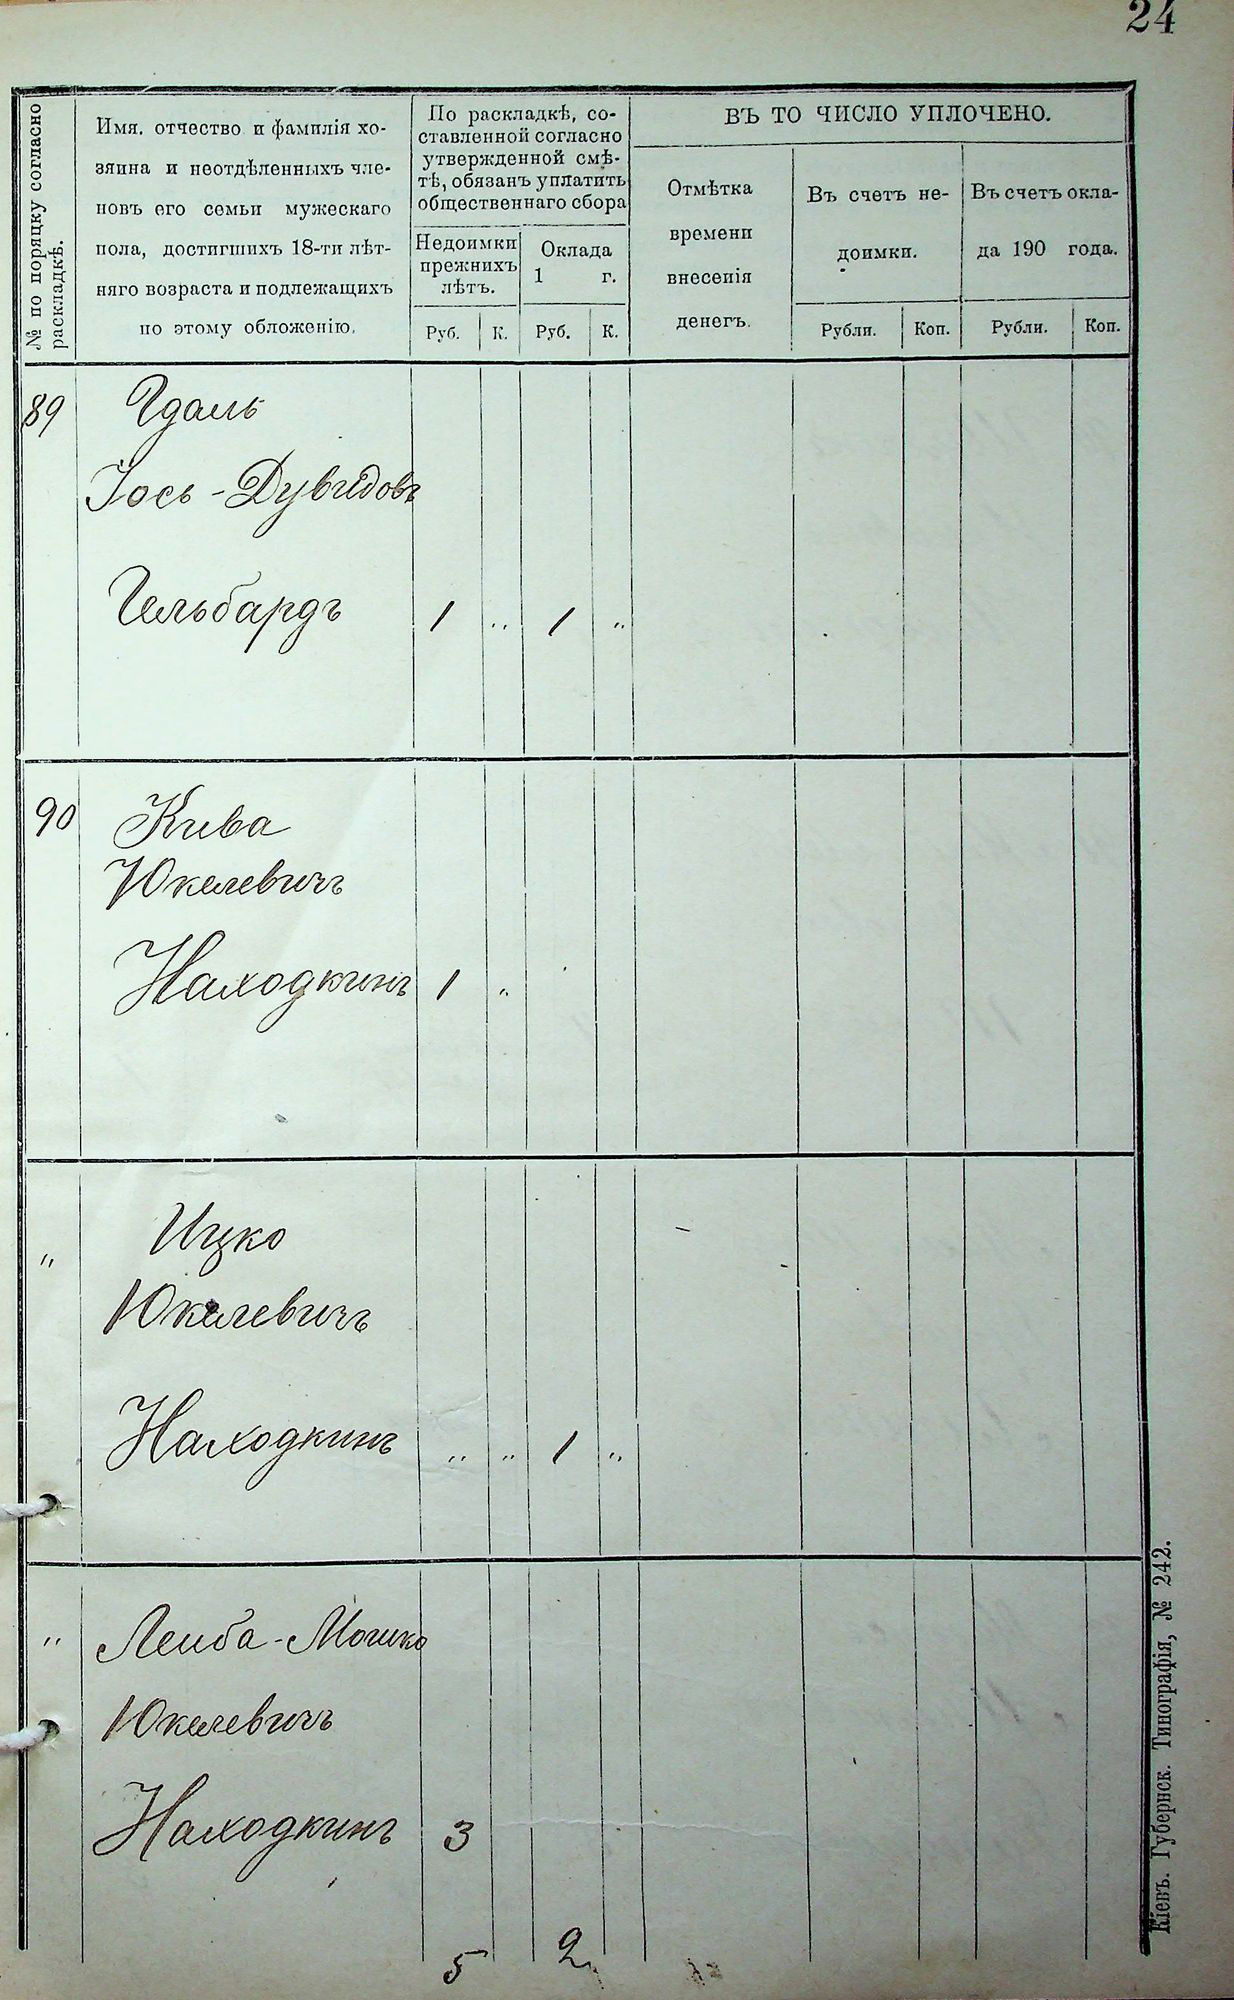 24
№ по поряцку согласно
раскладкѣ.
Имя, отчество и фамилія хо-
зяина и неотдѣленныхъ чле-
новъ его семьи мужескаго
пола, достигшихъ 18-ти лѣт-
няго возраста и подлежащихъ
по этому обложенію.
По раскладкѣ, со-
ставленной согласно
утвержденной смѣ-
тѣ, обязанъ уплатить
общественнаго сбора
Недоимки
прежнихъ
лѣтъ.
Оклада
1 г.
Руб. К. Руб. К.
ВЪ ТО ЧИСЛО УПЛОЧЕНО.
Отмѣтка
времени
внесенія
денегъ.
Въ счетъ не-
доимки.
Въ счетъ окла-
да 190 года.
Рубли. Коп. Рубли. Коп.
89 Гдаль
Іось-Дувидовъ
Гельбардъ 1 " 1 "
90 Кива
Юкелевичъ
Находкинъ 1 "
" Ицко
Юкелевичъ
Находкинъ " " 1 "
" Леиба-Мошко
Юкелевичъ
Находкинъ 3
5 2
Кіевъ. Губернск. Типографія, № 242.